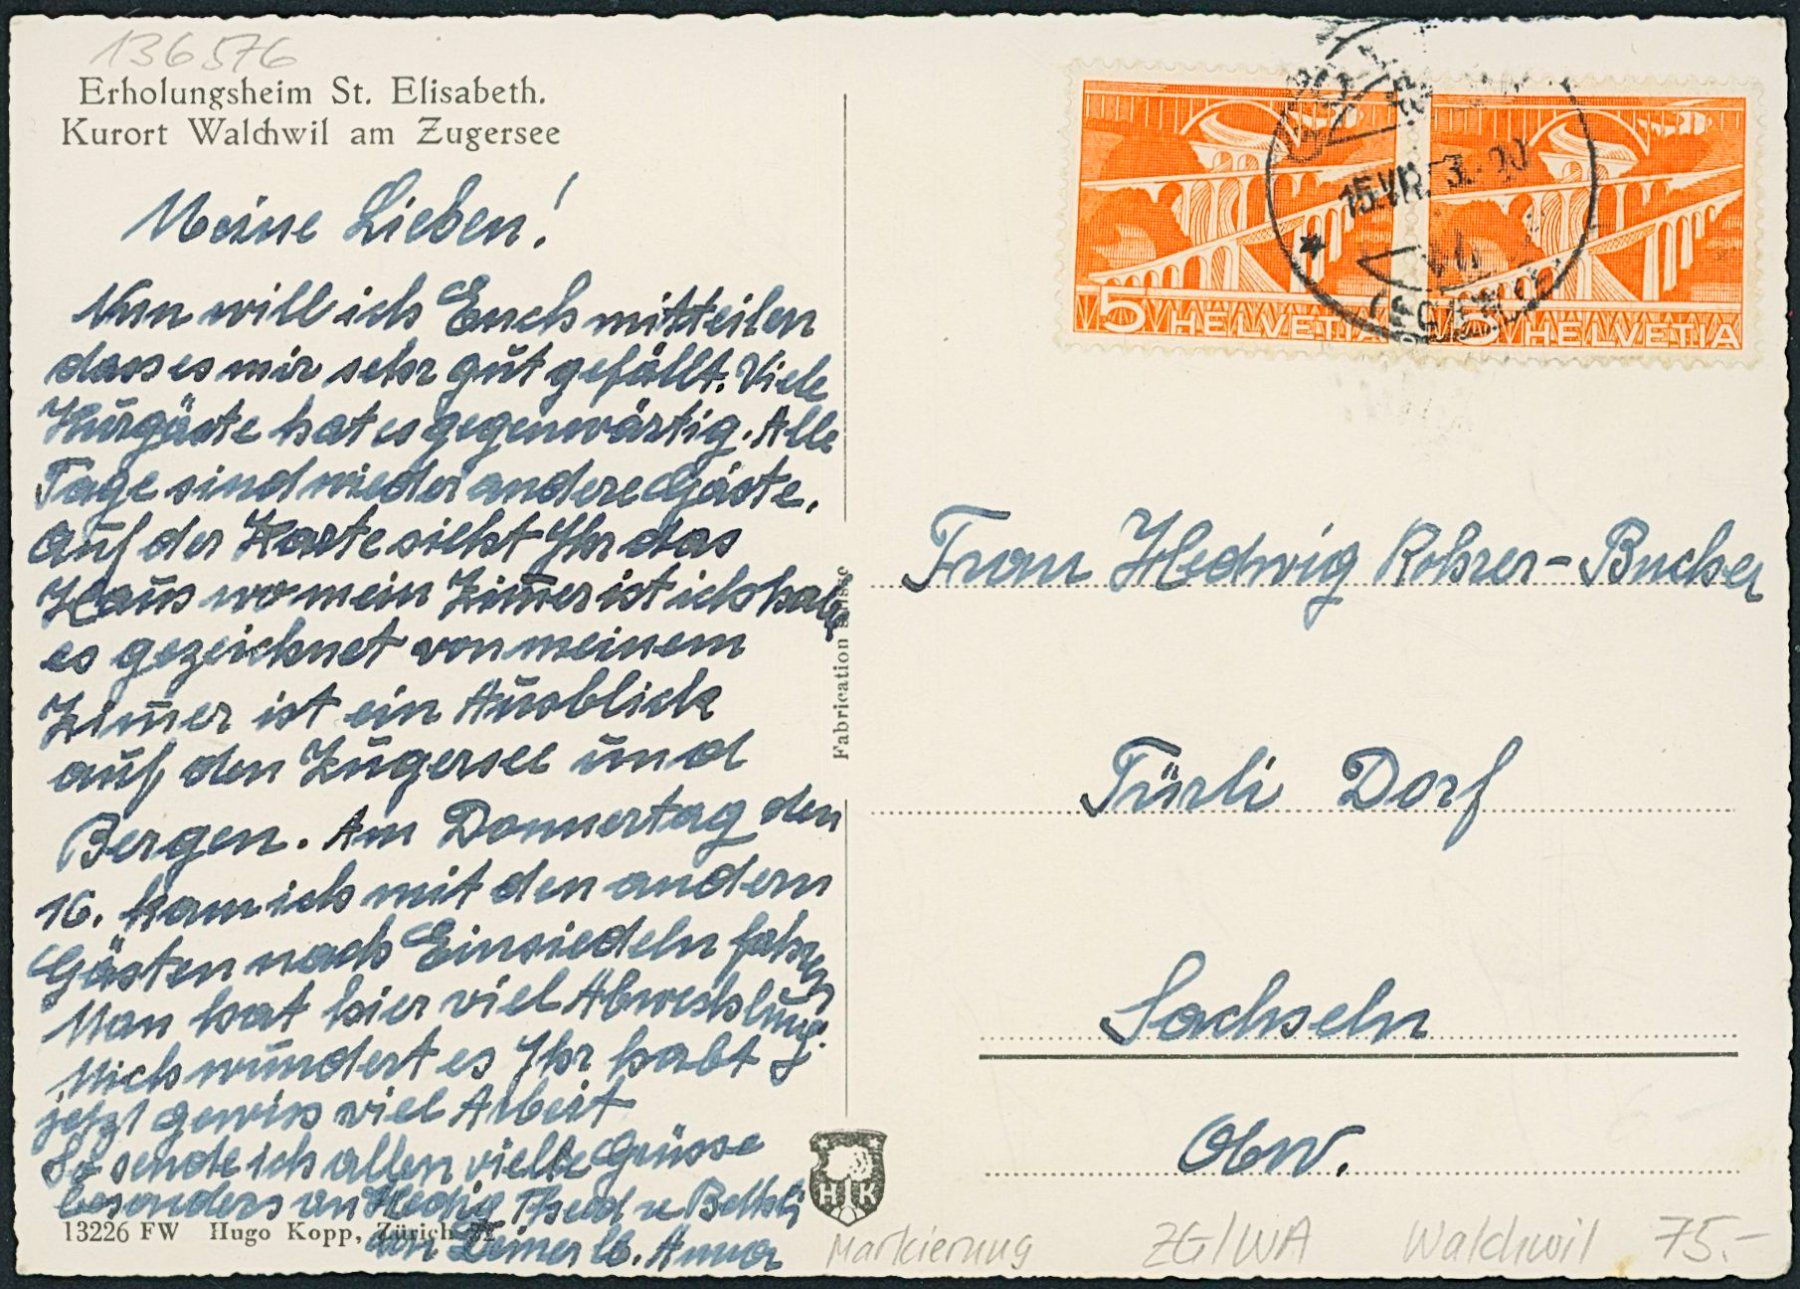 136576
Erholungsheim St. Elisabeth.
Kurort Walchwil am Zugersee
Meine Lieben!
Nun will ich Euch mitteilen
dass es mir sehr gut gefällt. Viele
Kurgäste hat es gegenwärtig. Alle
Tage sind wieder andere Gäste.
Auf der Karte sieht Ihr das
Haus wo mein Zim̅er ist ich habe
es gezeichnet von meinem
Zim̅er ist ein Ausblick
auf den Zugersee und
Bergen. Am Donnertag den
16. kam ich mit den andern
Gästen nach Einsiedeln fahren
Man hat hier viel Abwechslung.
Mich wundert es Ihr habt
jetzt gewiss viel Arbeit
So sende ich allen viele Grüsse
besonders an Hedig Theod u Bethli
von Deiner lb. Anna
13226 FW Hugo Kopp, Zürich
Fabrication Suisse
HK
5 HELVETIA
5 HELVETIA
15.VII.53.-20
Frau Hedwig Rohrer-Bucher
Türli Dorf
Sachseln
Obw.
Markierung ZG/WA Walchwil 75.-